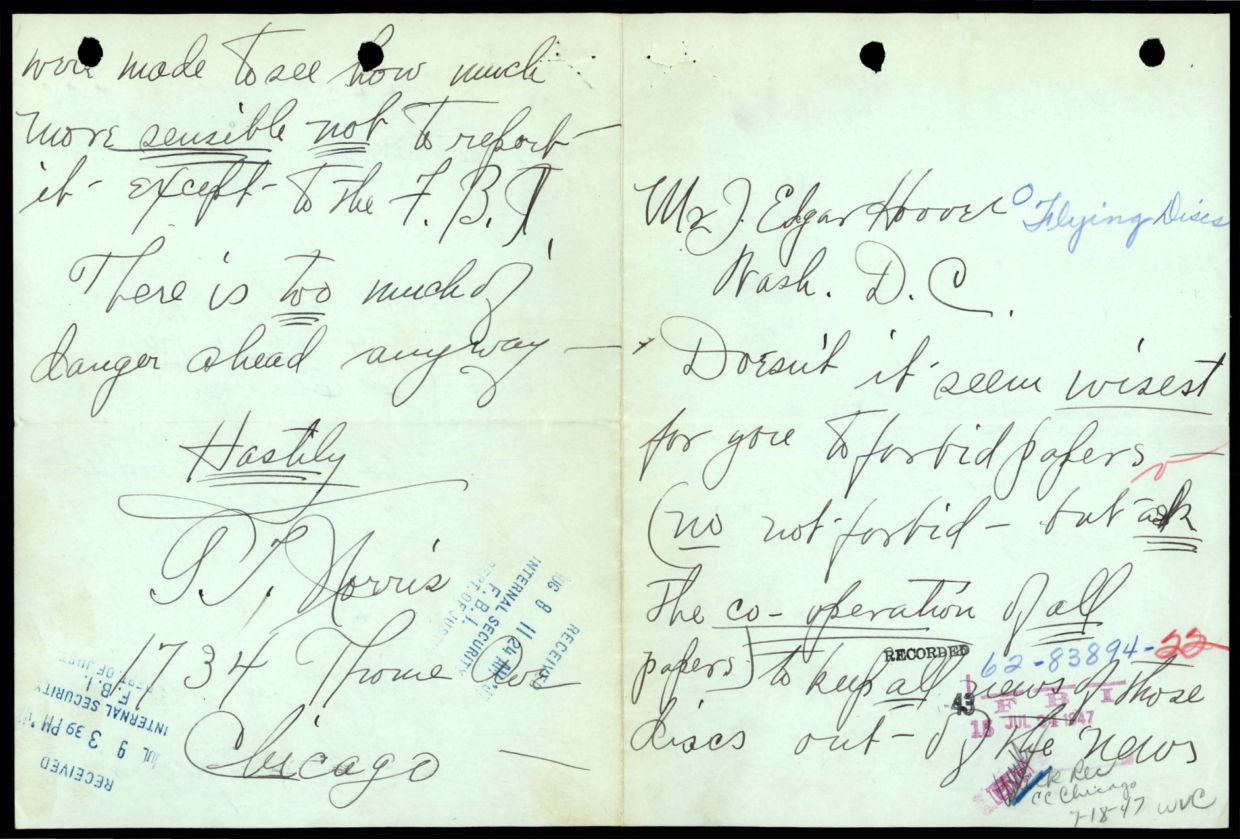 were made to see how much
more sensible not to report
it - except - to the F. B. I.
There is too much of
danger ahead anyway -
Hastily
Norris
1734 Thome Ave
Chicago -
RECEIVED
JUL 9 3 39 PM
INTERNAL SECURITY
F. B. I.
DEPT. OF JUST
RECEIVED
AUG 8 11 24 AM
INTERNAL SECURITY
F. B. I.
DEPT. OF JUST
Mr J. Edgar Hoover
Flying Discs
Wash. D. C.
Doesn't it seem wisest
for you to forbid papers -
(no not forbid - but ask
the co-operation of all
papers) to keep all news of those
discs out - of the news
RECORDED
62-83894-22
43
F B I
18 JUL 1947
ack Rec
CC Chicago
7-18-47 WVC